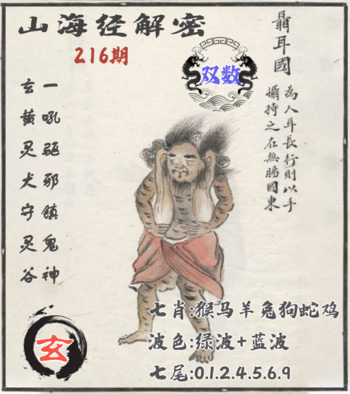 山海经解密
216期
双数
聶耳國
為人耳長行則以手
攝持之在無腸國東
一吼驅邪鎮鬼神
玄黃灵犬守灵谷
玄
七肖:猴马羊兔狗蛇鸡
波色:绿波+蓝波
七尾:0.1.2.4.5.6.9